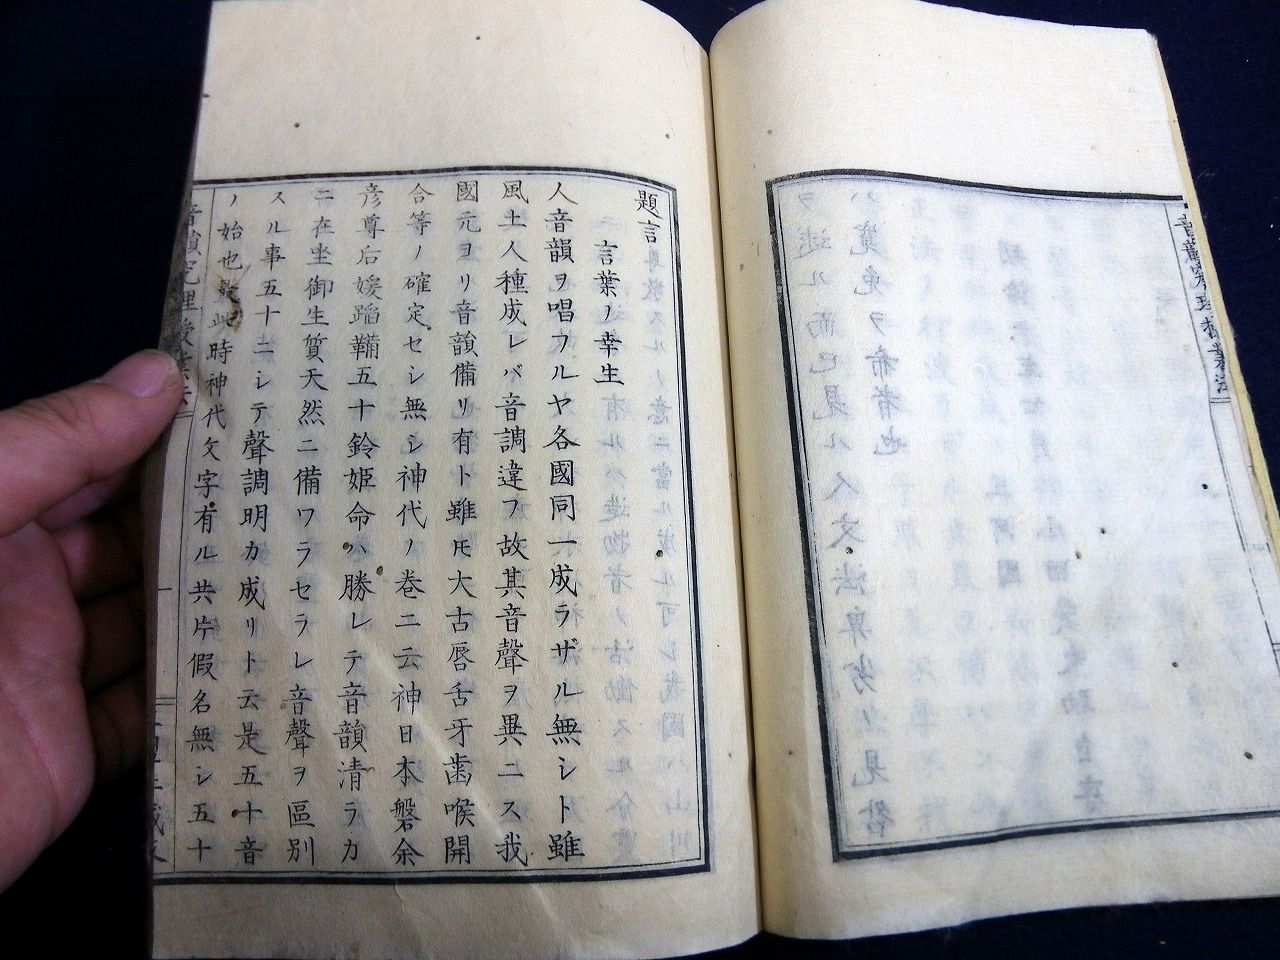 音韻究理授業法
題言
言葉ノ幸生
人音韻ヲ唱フルヤ各國同一成ラザル無シト雖
風土人種成レバ音調違フ故其音聲ヲ異ニス我
國元ヨリ音韻備リ有ト雖モ大古唇舌牙歯喉開
合等ノ確定セシ無シ神代ノ巻ニ云神日本磐余
彦尊后媛蹈鞴五十鈴姫命ハ勝レテ音韻清ラカ
ニ在坐御生質天然ニ備ワラセラレ音聲ヲ區別
スル事五十ニシテ聲調明カ成リト云是五十音
ノ始也最此時神代文字有ル共片假名無シ五十
音韻究理授業法